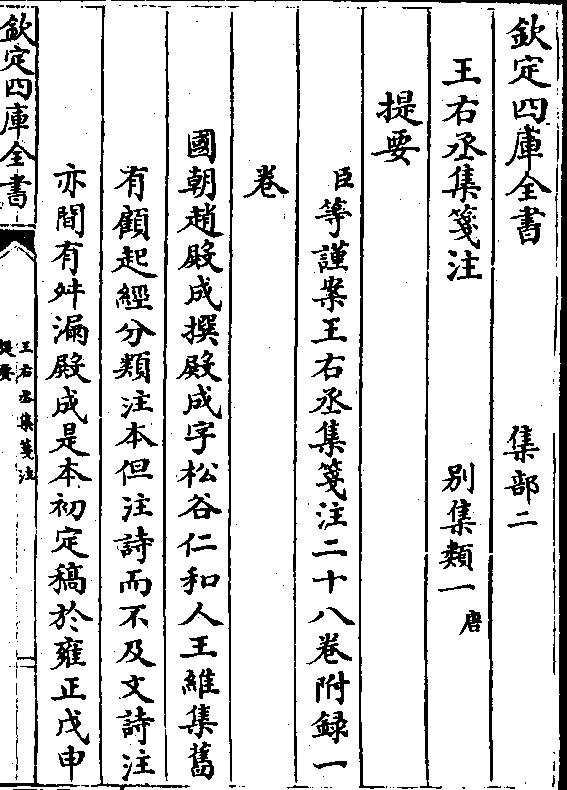 欽定四庫全書　集部二
王右丞集箋注　別集類一唐
提要
臣等謹案王右丞集箋注二十八卷附録一
卷
國朝趙殿成撰殿成字松谷仁和人王維集舊
有顧起經分類注本但注詩而不及文詩注
亦間有舛漏殿成是本初定稿於雍正戊申
欽定四庫全書
王右丞集箋注
提要
一